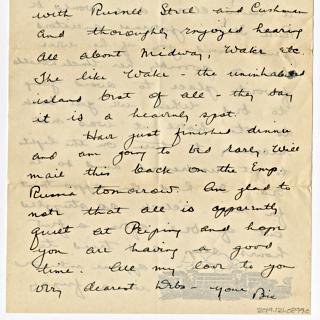 with Russell Stul and Cushman
and thoroughly enjoyed hearing
all about Midway, Wake etc
The like Wake - the uninhabited
island best of all - they say
it is a heavenly spot.
Have just finished dinner
and am going to bed early. Will
mail this back on the Emp.
Russia tomorrow. Am glad to
note that all is apparently
quiet at Peiping and hope
you are having a good
time. All my love to you
very dearest - your Bie